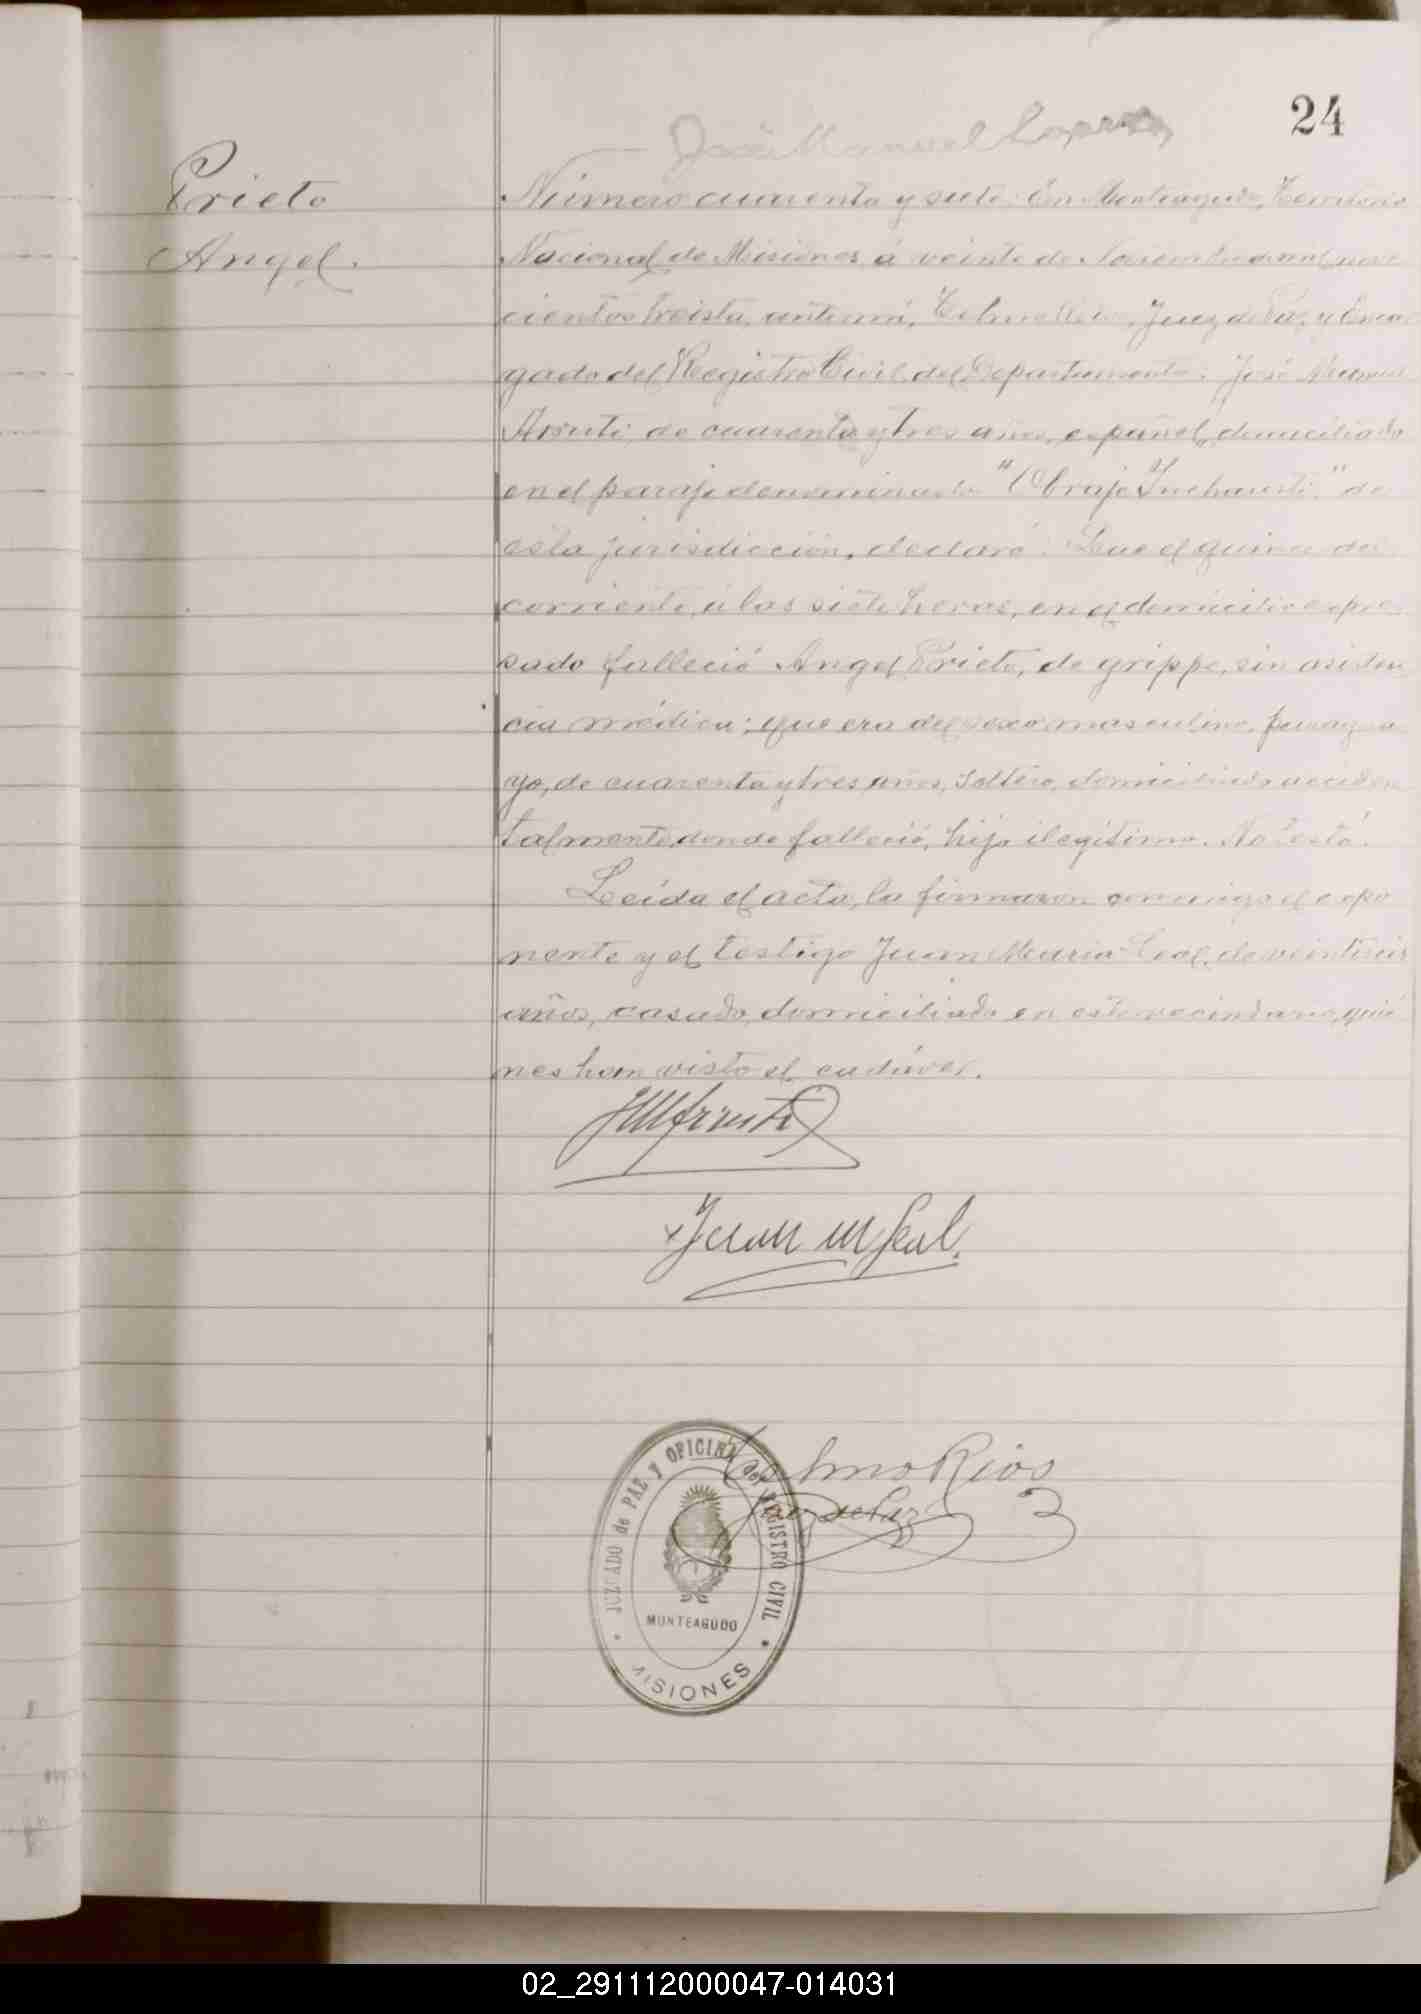 24
José Manuel Lopez
Prieto
Angel.
Número cuarenta y siete. En Monteagudo, Territorio
Nacional de Misiones, á veinte de Noviembre de mil nove-
cientos treinta, ante mí, Telmo Rios, Juez de Paz y Encar-
gado del Registro Civil del Departamento. José Manuel
Arruti, de cuarenta y tres años, español, domiciliado
en el paraje denominado "Obraje Inchausti" de
esta jurisdicción, declaró: Que el quince del
corriente, á las siete horas, en el domicilio expre-
sado falleció Angel Prieto, de grippe, sin asisten-
cia médica; que era del sexo masculino, paragua-
yo, de cuarenta y tres años, soltero, domiciliado acciden-
talmente donde falleció, hijo ilegítimo. No testó.
Leída el acta, la firmaron conmigo el expo-
nente y el testigo Juan Maria Leal, de veintiseis
años, casado, domiciliado en este vecindario, quie-
nes han visto el cadáver.
JMArruti
Juan M Leal.
Telmo Rios
Juez de Paz
JUZGADO de PAZ Y OFICINA del REGISTRO CIVIL
MONTEAGUDO
MISIONES
02_291112000047-014031